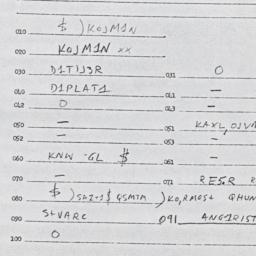 010 $ ) KOJM1N
020 KOJM1N xx
030 D1TIJ3R 031 O
040 D1PLAT1 041 —
042 O 043 —
050 — 051 KAXL, OJVM
052 — 053 —
060 KNW -GL $ 061 —
070 — 071 RESR R
080 $ ) ) KO, RMOST QHUN
090 S+VARC 091 ANG1RIST
100 O